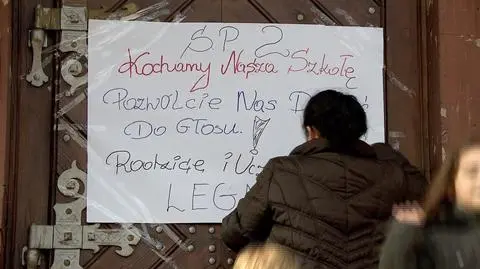 S.P. 2
Kochamy Nasza Szkołę
Pozwólcie Nas D
Do Głosu!
Rodzice i Uc
LEGN